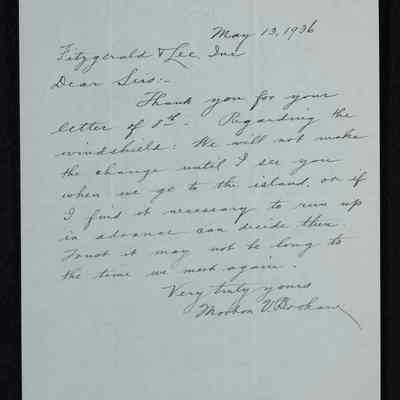 May 13, 1936
Fitzgerald & Lee, Inc
Dear Sirs:-
Thank you for your
letter of 8th. Regarding the
windshield: We will not make
the change until I see you
when we go to the island, or if
I find it necessary to run up
in advance can decide then.
Trust it may not be long to
the time we meet again.
Very truly yours
V.